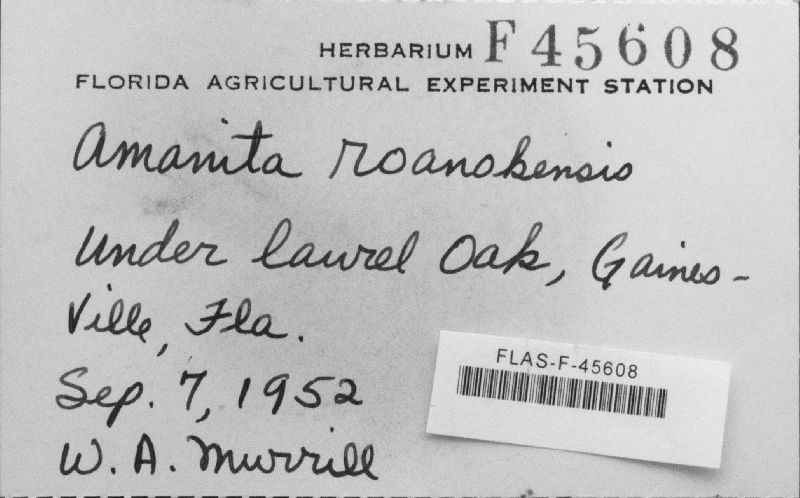 HERBARIUM F45608
FLORIDA AGRICULTURAL EXPERIMENT STATION
Amanita roanokensis
Under laurel oak, Gaines-
ville, Fla.
Sep. 7, 1952
W. A. Murrill
FLAS-F-45608